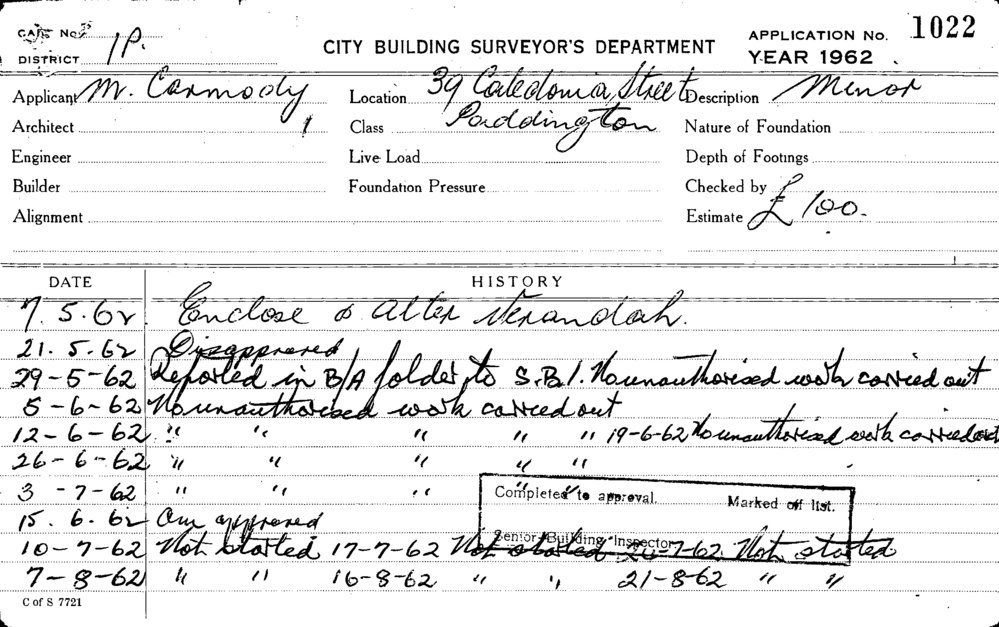 CITY BUILDING SURVEYOR'S DEPARTMENT
APPLICATION No. 1022
YEAR 1962
DISTRICT 1P.
Applicant M. Carmody Location 39 Caledonia Street Description Minor
Architect Class Paddington Nature of Foundation
Engineer Live Load Depth of Footings
Builder Foundation Pressure Checked by
Alignment Estimate £100.
DATE HISTORY
7.5.62 Enclose & Alter Verandah.
21.5.62 Disapproved
29-5-62 Reported in B/A folder to S.B.I. No unauthorised work carried out
5-6-62 No unauthorised work carried out
12-6-62 " " " " " 19-6-62 No unauthorised work carried out
26-6-62 " " " " "
3-7-62 " " " " "
Completed to approval. Marked off list.
15.6.62 Am approved
Senior Building Inspector
10-7-62 Not started 17-7-62 Not started 24-7-62 Not started
7-8-62 " " 16-8-62 " " 21-8-62 " "
C of S 7721